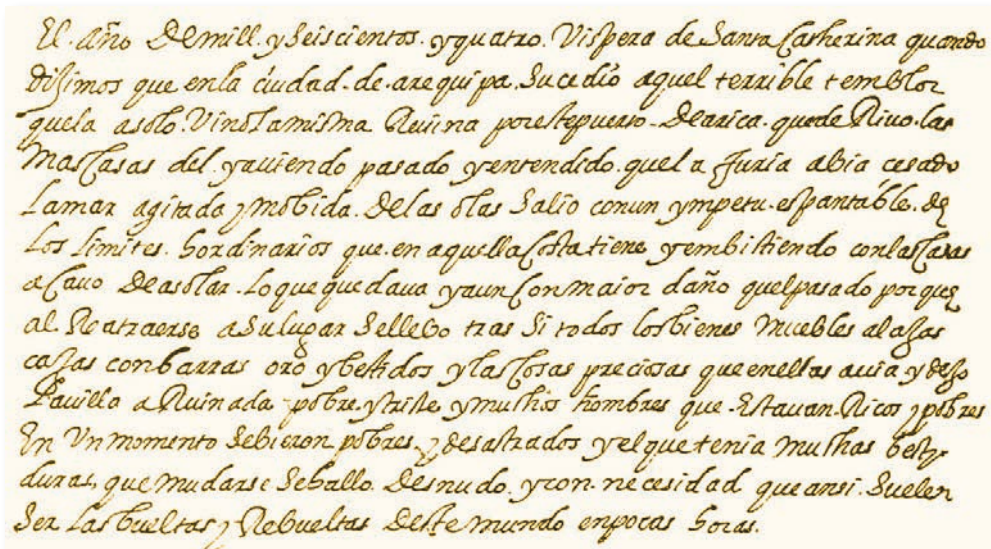 El año De mill y Seiscientos y quatro. Vispera de Santa Catherina quando
diximos que en la ciudad de arequipa Sucedio aquel terrible temblor
que la asolo. Vino La misma Ruina por este puerto De arica que deRivo las
mas Casas del y auiendo pasado y entendido que la furia abia cesado
La mar agitada y mobida De las olas Salio con un ympetu espantable de
Los Limites hordinarios que en aquella Costa tiene y embistiendo con las Casas
aCauo De asolar Lo que quedava y aun Con maior daño quel pasado porque
al ReatraerSe a Su lugar Se llebo tras Si todos los bienes muebles alajas
caxas con barras oro y bestidos y las Cosas preciosas que en ellas auia y dexo
La villa aRuinada pobre y triste y muchos hombres que Estavan Ricos y pobres
En Un momento Se bieron pobres y desastrados y el que tenia muchas besti
duras que mudarse Se hallo Desnudo y con necesidad que ansi Suelen
Ser Las bueltas y Rebueltas Deste mundo en pocas horas.